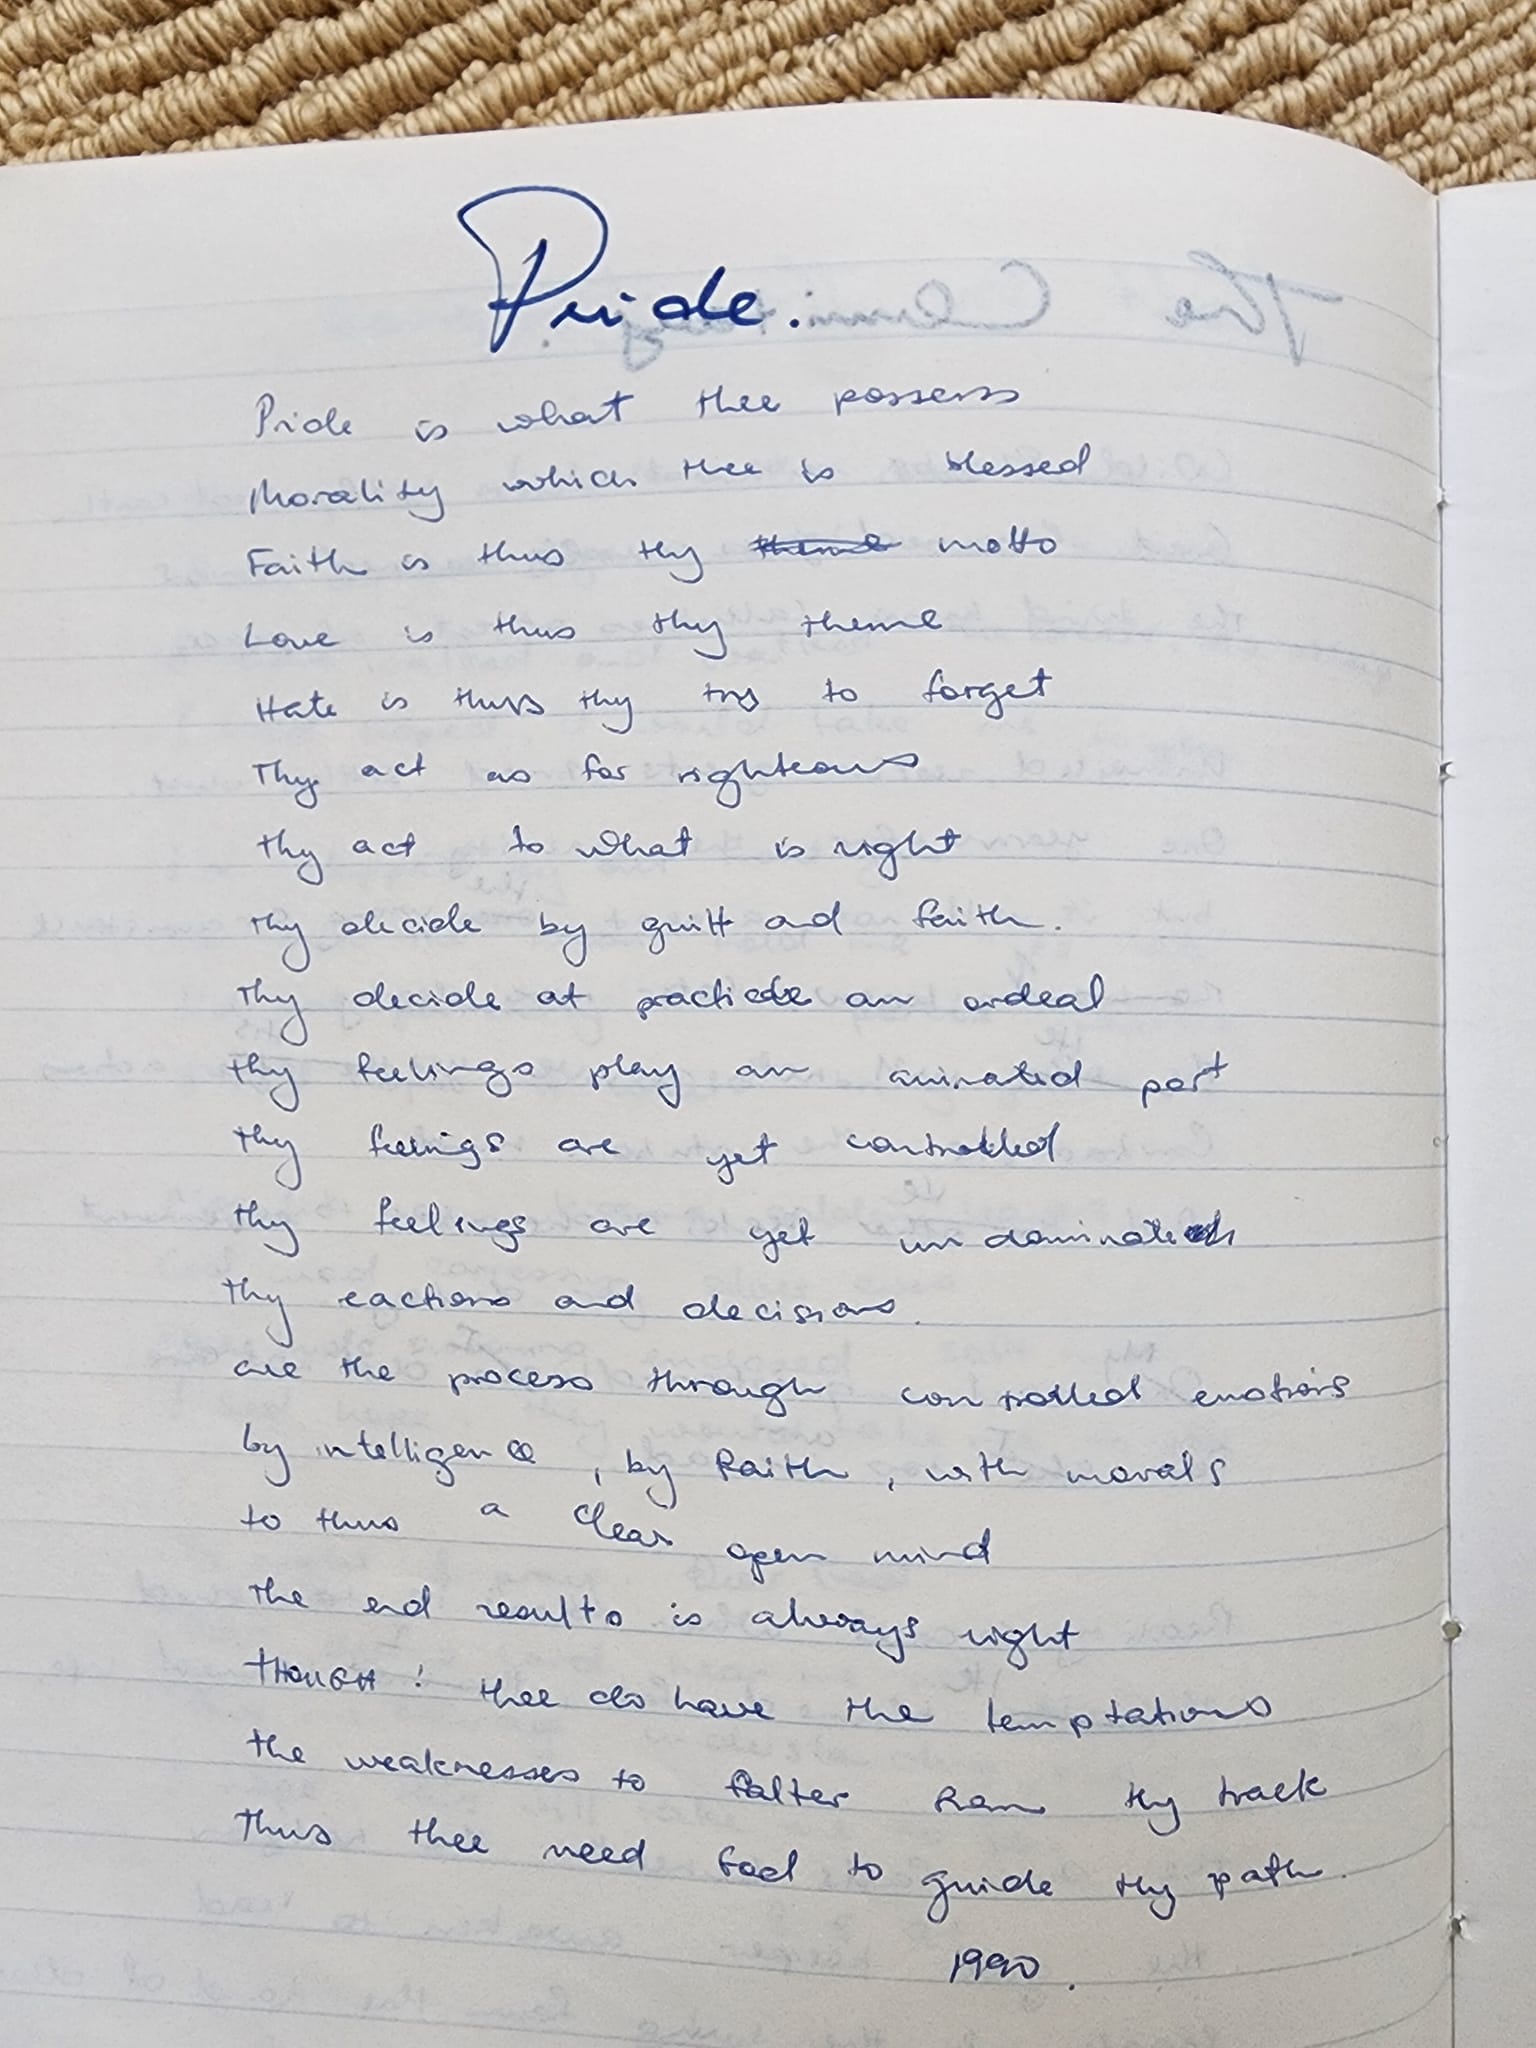 Pride.
Pride is what thee possess
Morality which thee is blessed
Faith is thus thy theme motto
Love is thus thy theme
Hate is thus thy try to forget
Thy act as for righteous
thy act to what is right
thy decide by guilt and faith.
Thy decide at practice an ordeal
thy feelings play an animated part
thy feelings are yet controlled
thy feelings are yet undominated
thy eactions and decisions.
are the process through controlled emotions
by intelligence, by faith, with morals
to thus a clear open mind
the end results is always right
THOUGH! thee do have the temptations
the weaknesses to falter from thy track
Thus thee need God to guide thy path.
1990.